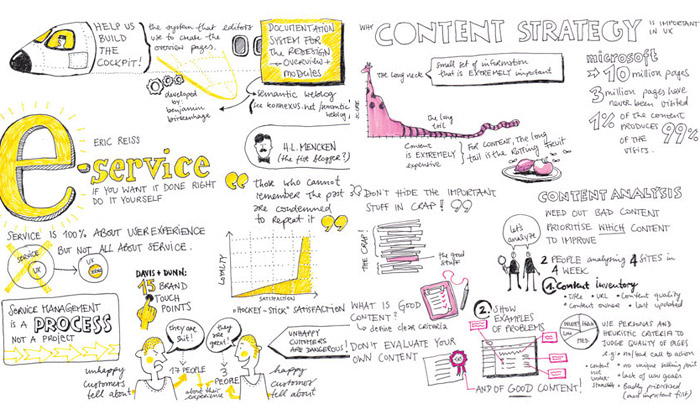 HELP US
BUILD
THE
COCKPIT!
the system that editors
use to create the
overview pages.
developed
by:
benjamin
birkenhake
DOCUMENTATION
SYSTEM FOR
THE REDESIGN
→ OVERVIEW +
MODULES
semantic weblog
see kornexus.net/semantic
weblog
ERIC REISS
e-service
IF YOU WANT IT DONE RIGHT
DO IT YOURSELF
H.L. MENCKEN
(the first blogger?)
“ Those who cannot
remember the past
are condemned
to repeat it ”
SERVICE IS 100% ABOUT USER EXPERIENCE
BUT NOT ALL ABOUT SERVICE.
SERVICE
UX
UX
SERVICE MANAGEMENT
IS A PROCESS
NOT A PROJECT
DAVIS + DUNN:
15 BRAND
TOUCH
POINTS
LOYALTY
SATISFACTION
"HOCKEY-STICK" SATISFACTION
they are
shit!
they are
great!
UNHAPPY
CUSTOMERS
ARE DANGEROUS!
unhappy
customers
tell about
17 PEOPLE
about their
experience
3
PEOPLE
happy
customers
tell about
WHY CONTENT STRATEGY IS IMPORTANT
IN UX
the long neck
small set of information
that is EXTREMELY important
The long
tail
Content
is EXTREMELY
expensive
FOR CONTENT, the long
tail is the ROTTING fruit
microsoft
⇒ 10 million pages
3 million pages have
never been visited
1% of the content
PRODUCES 99%
OF THE
VISITS.
“ DON'T HIDE THE IMPORTANT
STUFF IN CRAP! ”
THE CRAP!
the good
stuff
WHAT IS GOOD
CONTENT?
↳ define clear criteria
DON'T EVALUATE YOUR
OWN CONTENT
CONTENT ANALYSIS
let's
analyze
WEED OUT BAD CONTENT
PRIORITISE WHICH CONTENT
TO IMPROVE
2 PEOPLE analysing 4 SITES in
4 WEEK
1. Content inventory
• Title • URL • Content quality
• Content owner • last updated
2. SHOW
EXAMPLES
OF PROBLEMS
AND OF GOOD CONTENT!
USE PERSONAS AND
HEURISTIC CRITERIA TO
JUDGE QUALITY OF PAGES
e.g. • no/bad call to action
• content
not under-
standable
• no unique selling point
• lack of use goals
• Badly prioritised
(most important first)